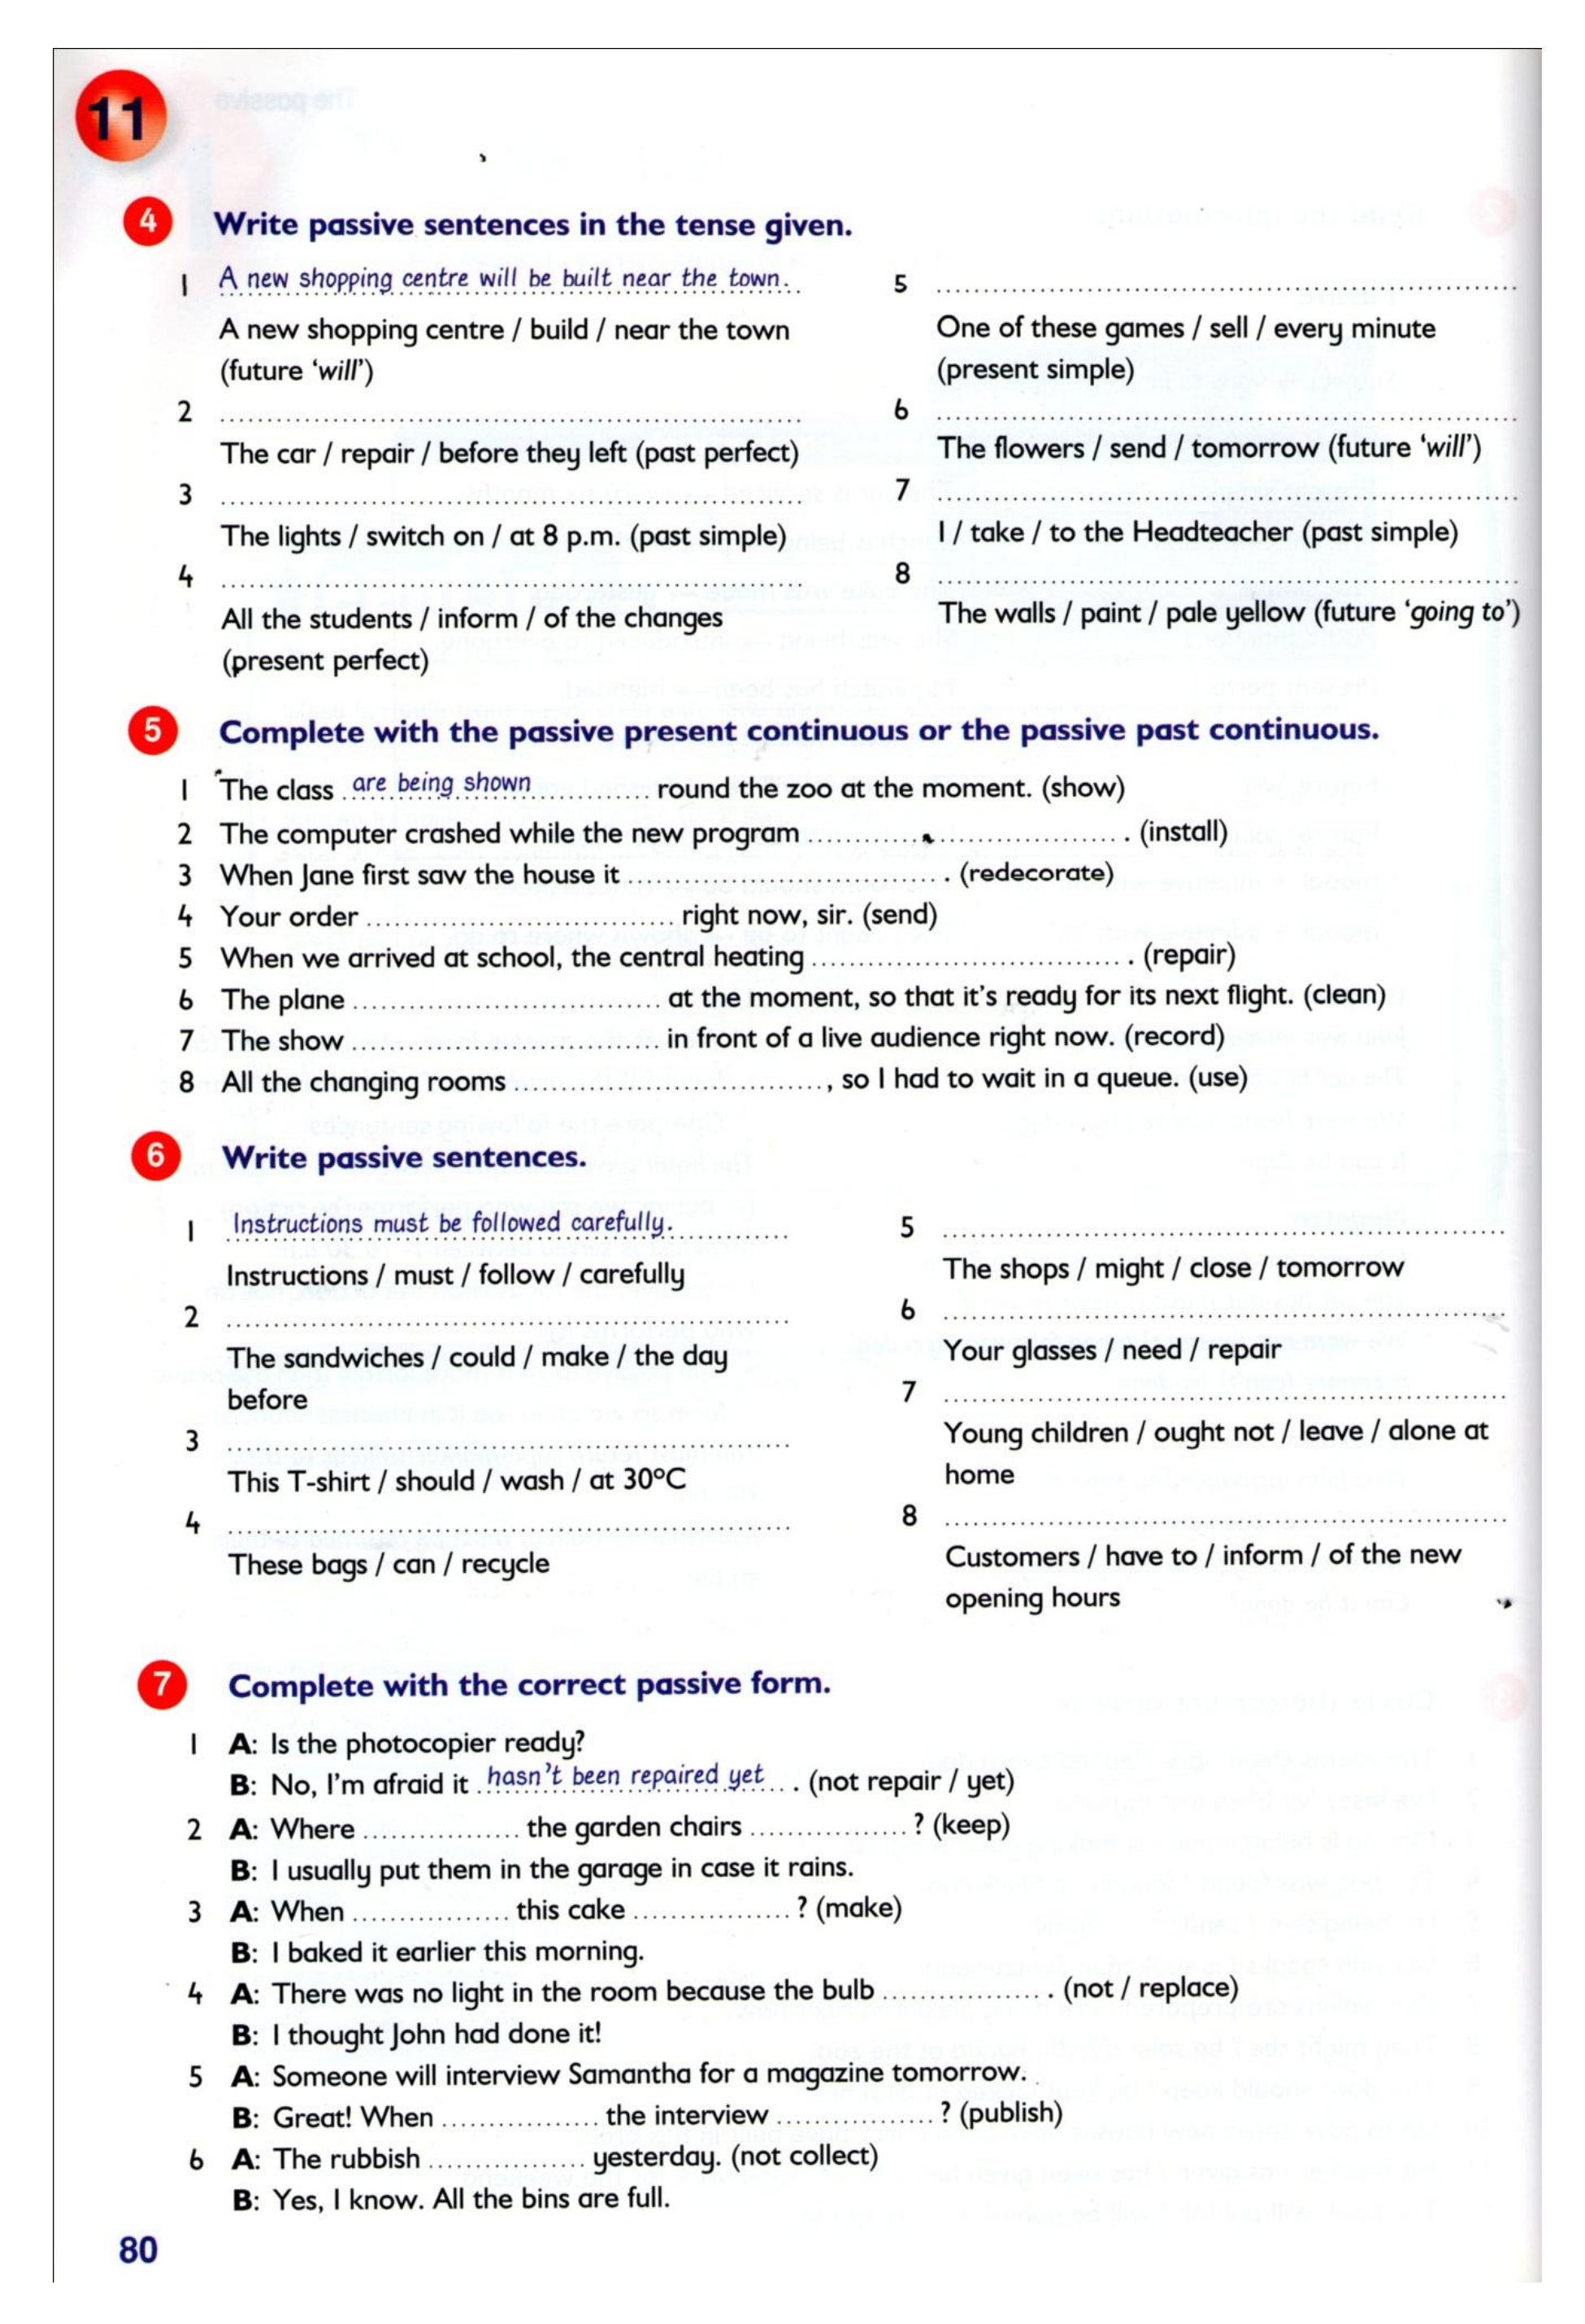 11
4 Write passive sentences in the tense given.
1 A new shopping centre will be built near the town.
A new shopping centre / build / near the town
(future 'will')
2 ........................................
The car / repair / before they left (past perfect)
3 ........................................
The lights / switch on / at 8 p.m. (past simple)
4 ........................................
All the students / inform / of the changes
(present perfect)
5 ........................................
One of these games / sell / every minute
(present simple)
6 ........................................
The flowers / send / tomorrow (future 'will')
7 ........................................
I / take / to the Headteacher (past simple)
8 ........................................
The walls / paint / pale yellow (future 'going to')
5 Complete with the passive present continuous or the passive past continuous.
1 The class are being shown round the zoo at the moment. (show)
2 The computer crashed while the new program .................... . (install)
3 When Jane first saw the house it .................... . (redecorate)
4 Your order .................... right now, sir. (send)
5 When we arrived at school, the central heating .................... . (repair)
6 The plane .................... at the moment, so that it's ready for its next flight. (clean)
7 The show .................... in front of a live audience right now. (record)
8 All the changing rooms .................... , so I had to wait in a queue. (use)
6 Write passive sentences.
1 Instructions must be followed carefully.
Instructions / must / follow / carefully
2 ........................................
The sandwiches / could / make / the day
before
3 ........................................
This T-shirt / should / wash / at 30°C
4 ........................................
These bags / can / recycle
5 ........................................
The shops / might / close / tomorrow
6 ........................................
Your glasses / need / repair
7 ........................................
Young children / ought not / leave / alone at
home
8 ........................................
Customers / have to / inform / of the new
opening hours
7 Complete with the correct passive form.
1 A: Is the photocopier ready?
B: No, I'm afraid it hasn't been repaired yet . (not repair / yet)
2 A: Where ................ the garden chairs ................ ? (keep)
B: I usually put them in the garage in case it rains.
3 A: When ................ this cake ................ ? (make)
B: I baked it earlier this morning.
4 A: There was no light in the room because the bulb ................ . (not / replace)
B: I thought John had done it!
5 A: Someone will interview Samantha for a magazine tomorrow.
B: Great! When ................ the interview ................ ? (publish)
6 A: The rubbish ................ yesterday. (not collect)
B: Yes, I know. All the bins are full.
80